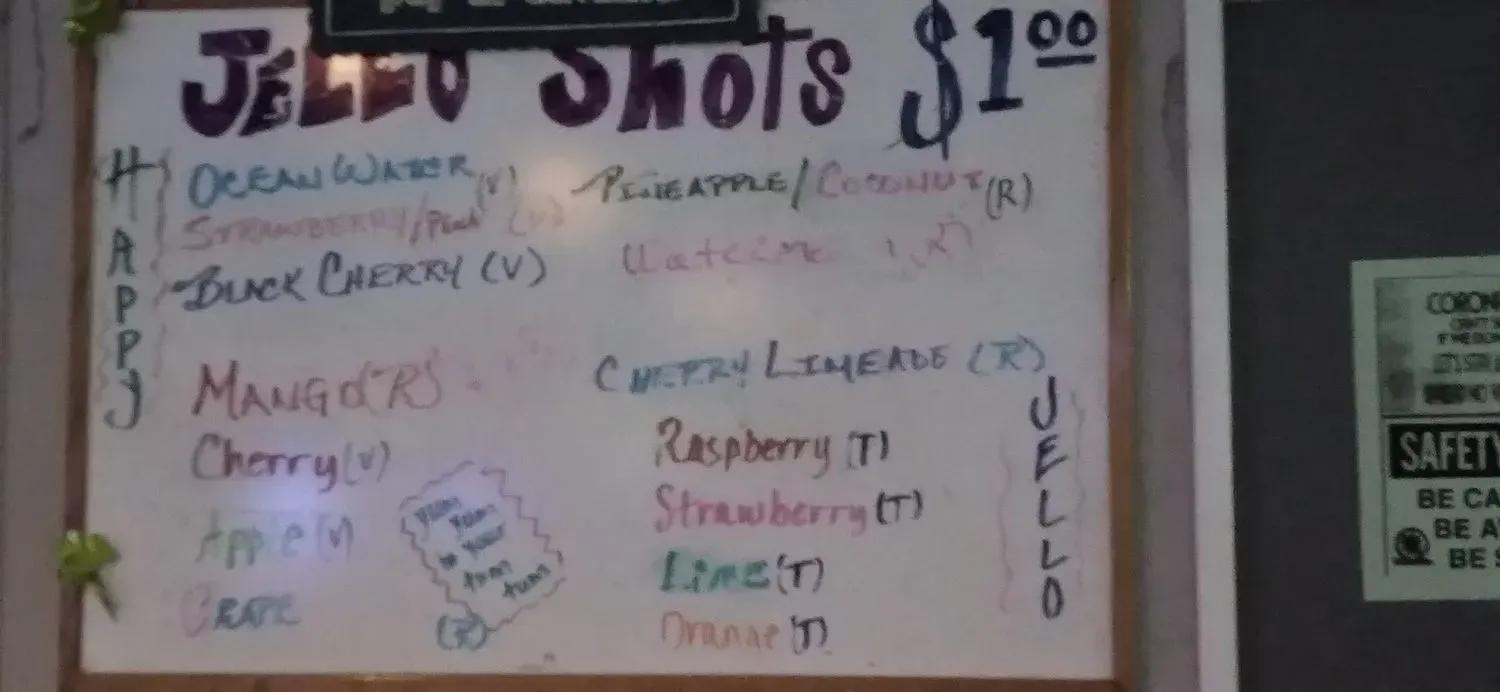 Jello Shots $1.00
HAPPY
OCEAN WATER (V)
STRAWBERRY/
BLACK CHERRY (V)
MANGO (R)
Cherry (V)
Apple (V)
GRAPE
Yum
Yum
in your
tum
tum
(R)
PINEAPPLE/COCONUT (R)
CHERRY LIMEADE (R)
Raspberry (T)
Strawberry (T)
Lime (T)
Orange (T)
JELLO
SAFETY
BE CA
BE A
BE S